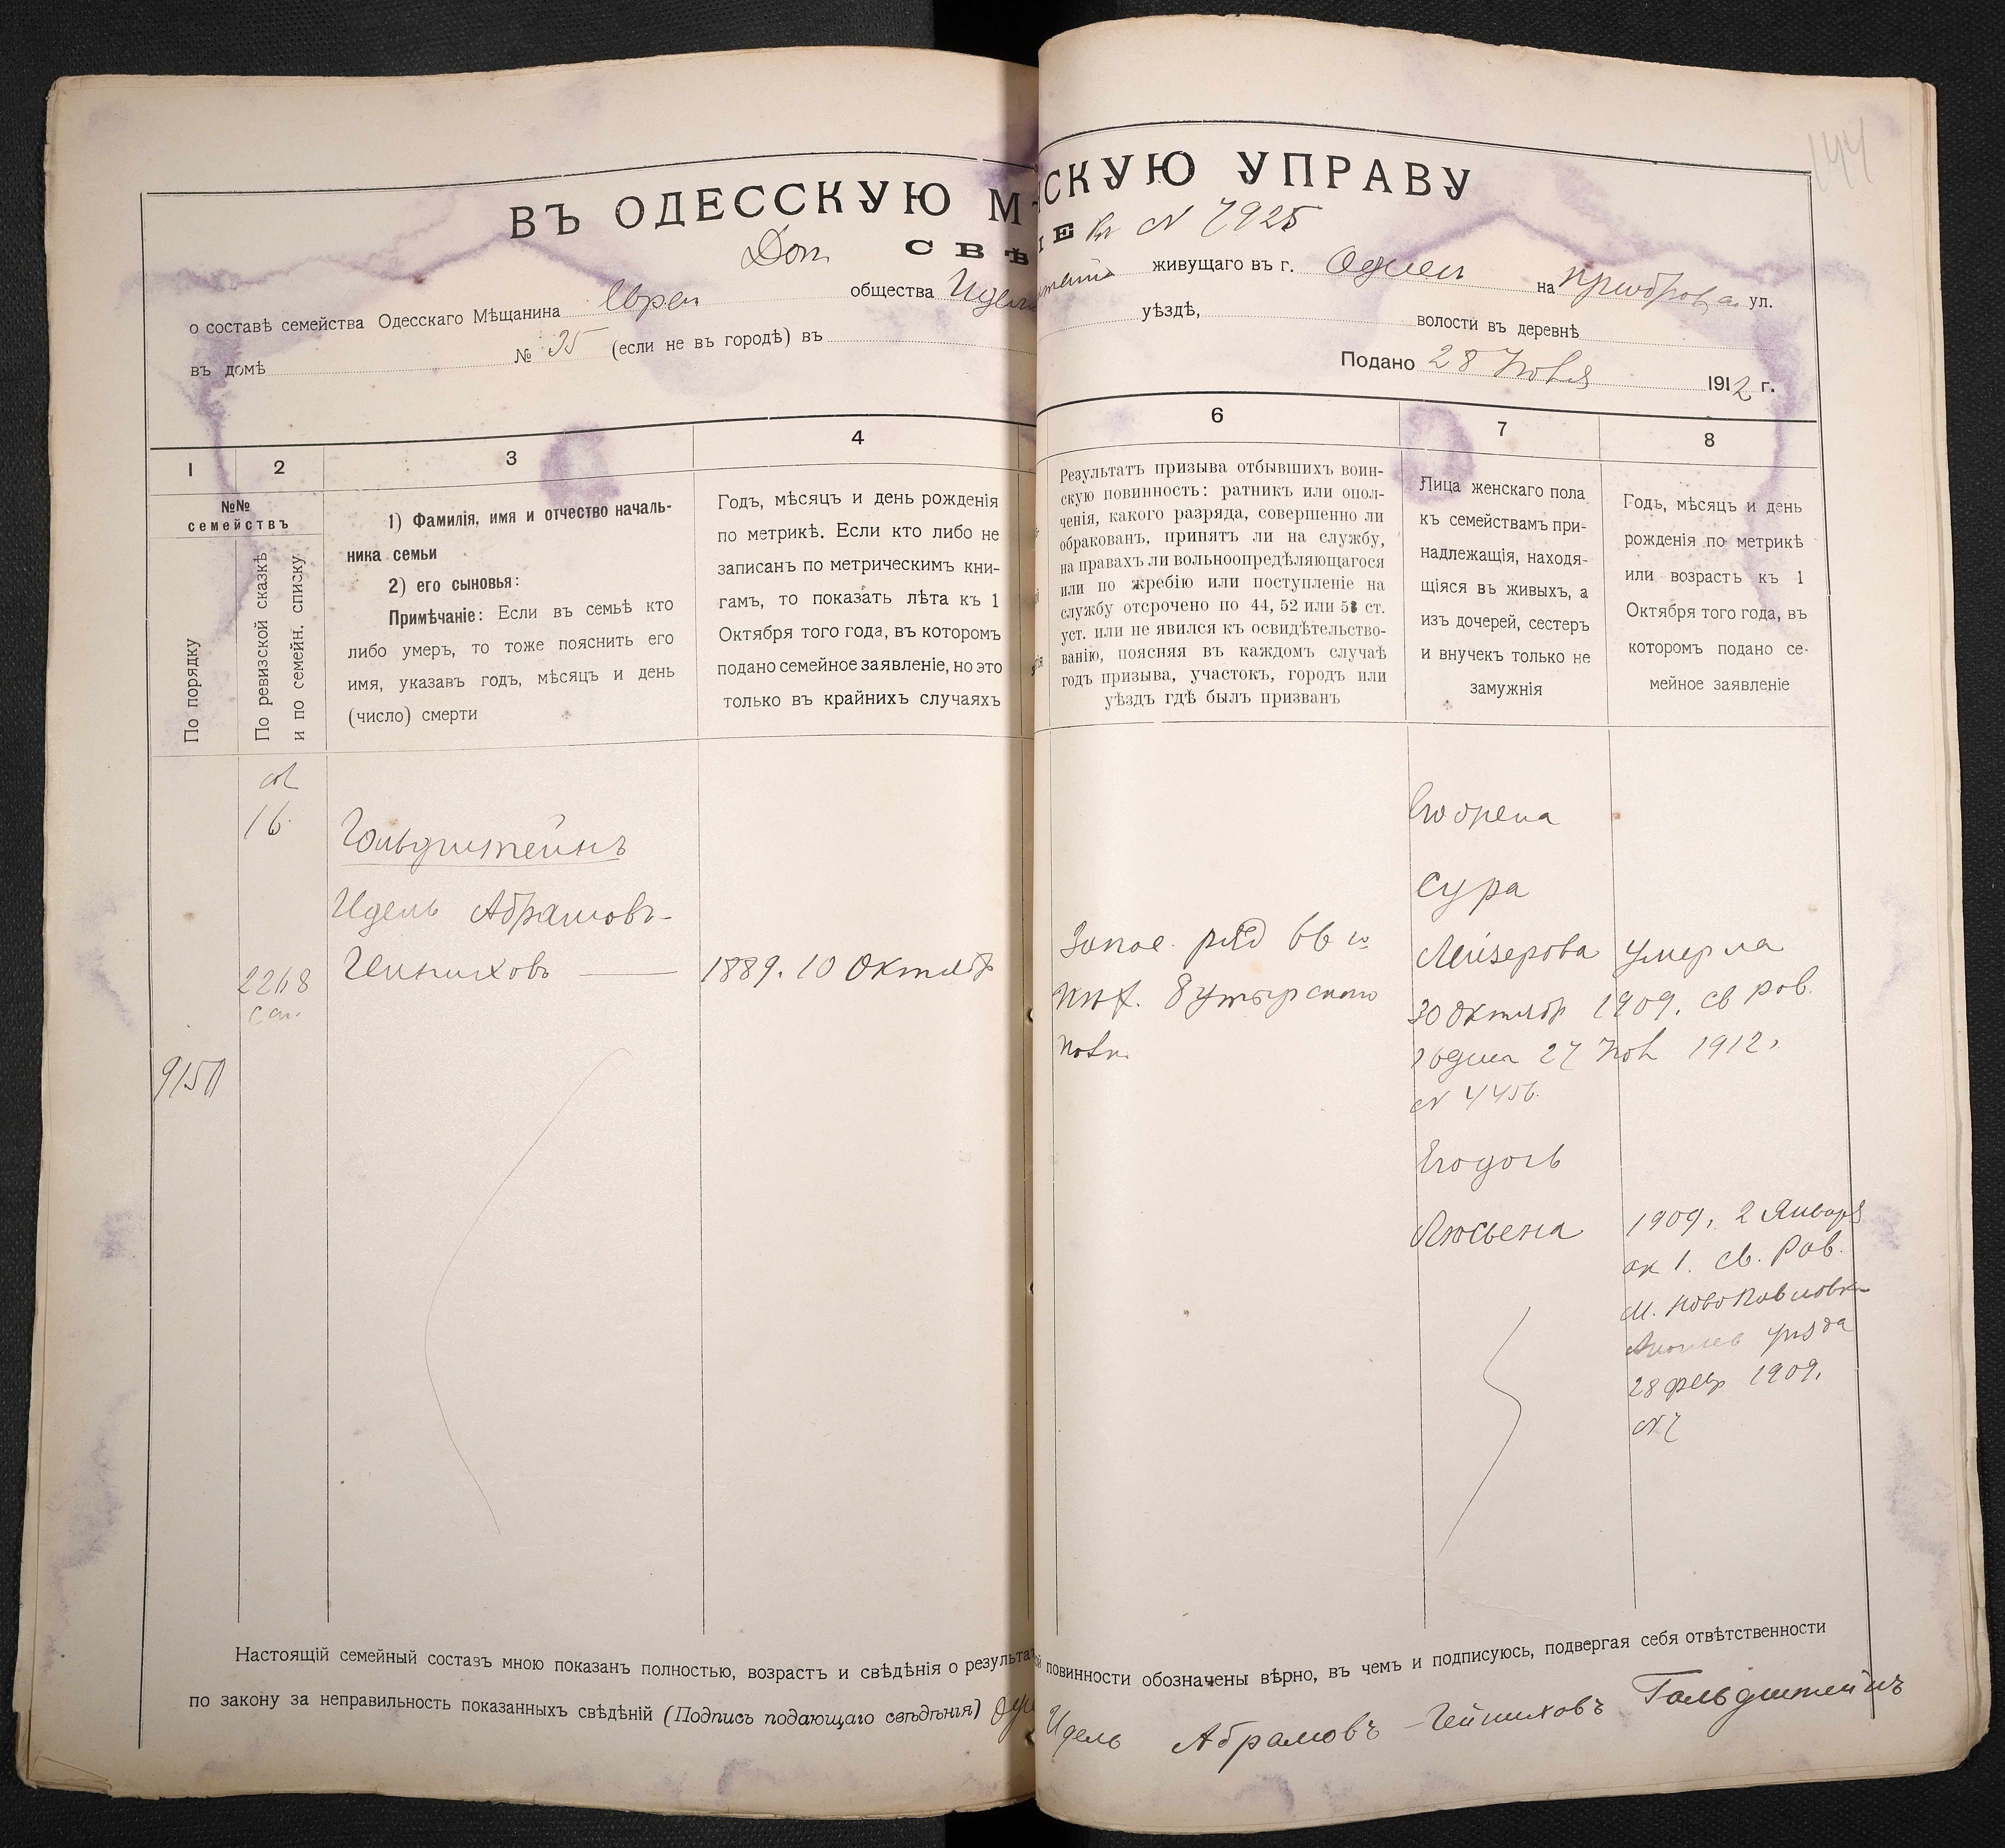 144
ВЪ ОДЕССКУЮ М СКУЮ УПРАВУ
Доп. СВѢ IЕ Кл N 7925
о составѣ семейства Одесскаго Мѣщанина Еврея общества живущаго въ г. Одессѣ на ул.
въ домѣ № 35 (если не въ городѣ) въ уѣздѣ, волости въ деревнѣ
Подано 28 Ноября 1912 г.
1
2
3
4
6
7
8
№№
семействъ
По порядку
По ревизской сказкѣ
и по семейн. списку
1) Фамилія, имя и отчество началь-
ника семьи
2) его сыновья:
Примѣчаніе: Если въ семьѣ кто
либо умеръ, то тоже пояснить его
имя, указавъ годъ, мѣсяцъ и день
(число) смерти
Годъ, мѣсяцъ и день рожденія
по метрикѣ. Если кто либо не
записанъ по метрическимъ кни-
гамъ, то показать лѣта къ 1
Октября того года, въ которомъ
подано семейное заявленіе, но это
только въ крайнихъ случаяхъ
Результатъ призыва отбывшихъ воин-
скую повинность: ратникъ или опол-
ченія, какого разряда, совершенно ли
обракованъ, принятъ ли на службу,
на правахъ ли вольноопредѣляющагося
или по жребію или поступленіе на
службу отсрочено по 44, 52 или 53 ст.
уст. или не явился къ освидѣтельство-
ванію, поясняя въ каждомъ случаѣ
годъ призыва, участокъ, городъ или
уѣздъ гдѣ былъ призванъ
Лица женскаго пола
къ семействамъ при-
надлежащія, находя-
щіяся въ живыхъ, а
изъ дочерей, сестеръ
и внучекъ только не
замужнія
Годъ, мѣсяцъ и день
рожденія по метрикѣ
или возрастъ къ 1
Октября того года, въ
которомъ подано се-
мейное заявленіе
16
Гольдштейнъ
Идель Абрамовъ-
2268 Гейниховъ 1889. 10 Октябр
Запас. ряд 66 го
пѣх. Бутырскаго
полк.
Сура
Лейзерова Умерла
30 Октябр 1909. св рав.
Одессы 27 Ноя 1912.
N 4456.
Его дочь
Люсьена
1909. 2 Января
св. Рав.
м. Новопавловки
уѣзда
28 фев 1909.
N 7
Настоящій семейный составъ мною показанъ полностью, возрастъ и свѣдѣнія о результа й повинности обозначены вѣрно, въ чемъ и подписуюсь, подвергая себя отвѣтственности
по закону за неправильность показанныхъ свѣдѣній (Подпись подающаго свѣдѣнія) Идель Абрамовъ-Гейниховъ Гольдштейнъ